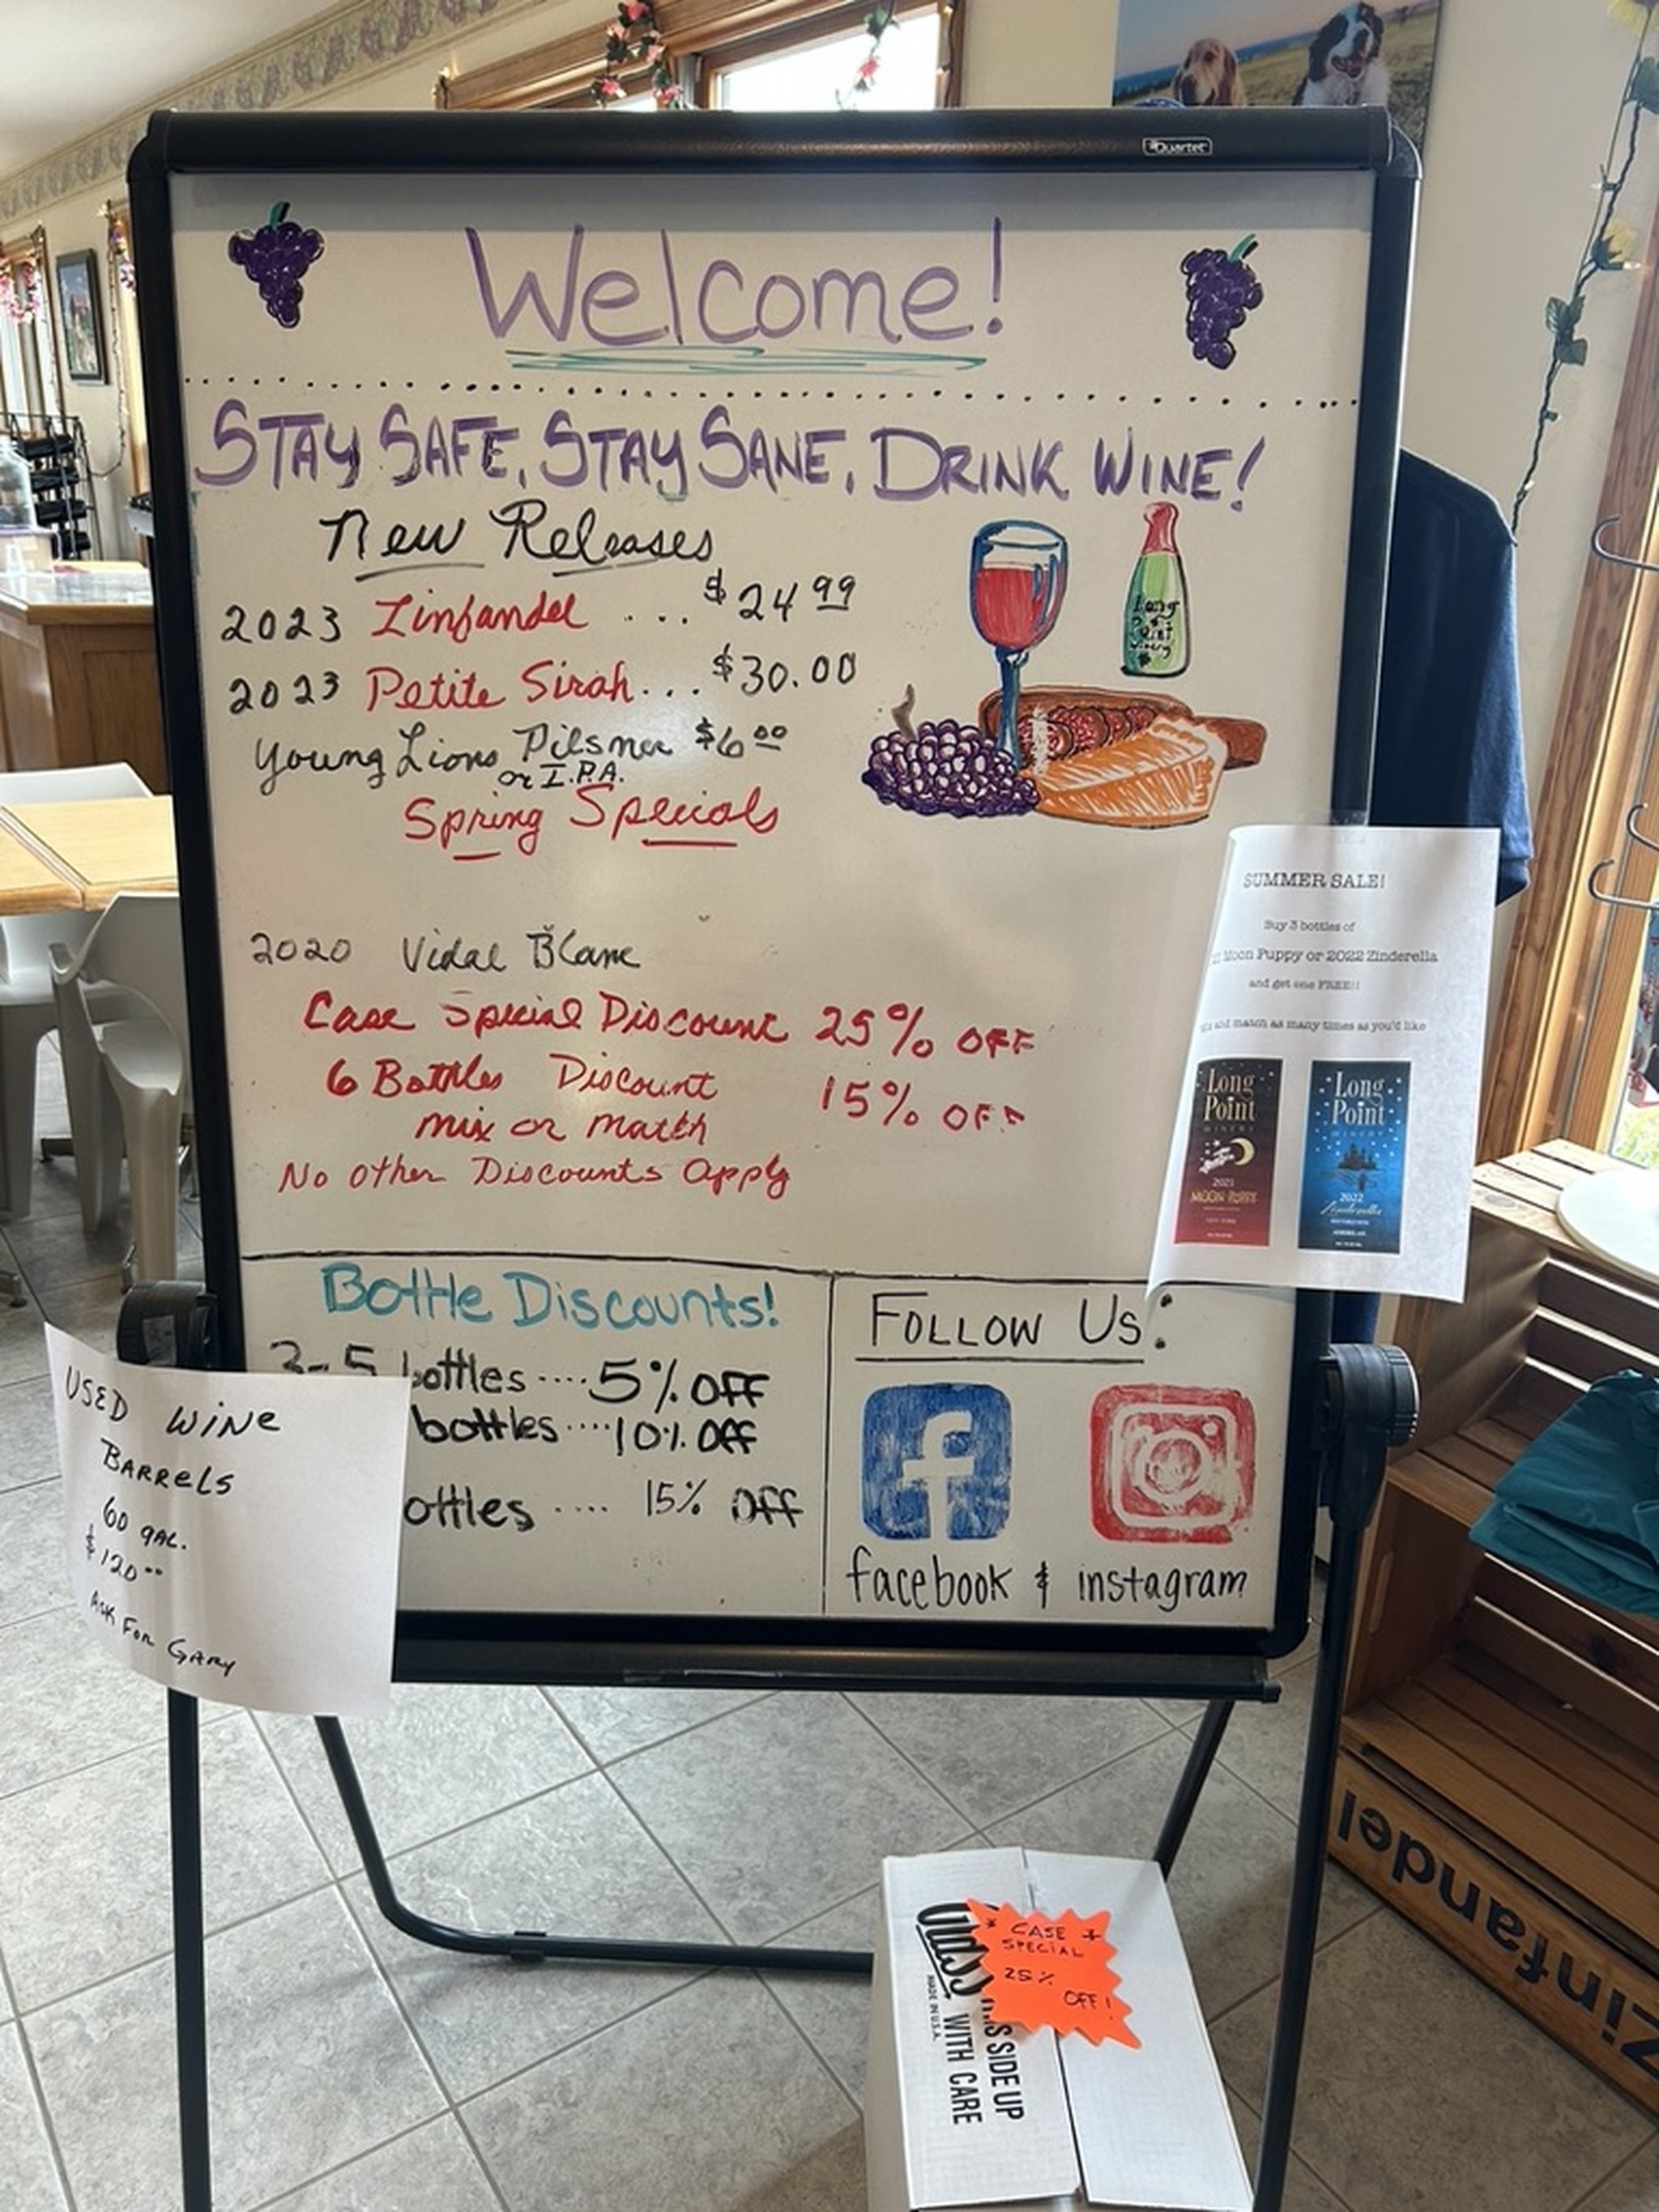 Quartet
Welcome!
STAY SAFE, STAY SANE, DRINK WINE!
New Releases
2023 Zinfandel .... $24 99
2023 Petite Sirah... $30.00
Young Lions Pilsner $6 00
or I.P.A.
Spring Specials
Long
Point
Winery
2020 Vidal Blanc
Case Special Discount 25% OFF
6 Bottles Discount 15% OFF
mix or match
No Other Discounts Apply
SUMMER SALE!
Buy 3 bottles of
Moon Puppy or 2022 Zinderella
and get one FREE!!
and match as many times as you'd like
Long
Point
WINERY
2021
MOON PUPPY
Long
Point
WINERY
2022
Zinderella
AMERICAN
Bottle Discounts!
3-5 bottles ....5% OFF
bottles ....10% OFF
ottles .... 15% OFF
FOLLOW US:
facebook & instagram
USED WINE
BARRELS
60 GAL.
$120 00
ASK FOR GARY
* CASE *
SPECIAL
25%
OFF!
MADE IN U.S.A.
SIDE UP
WITH CARE
Zinfandel